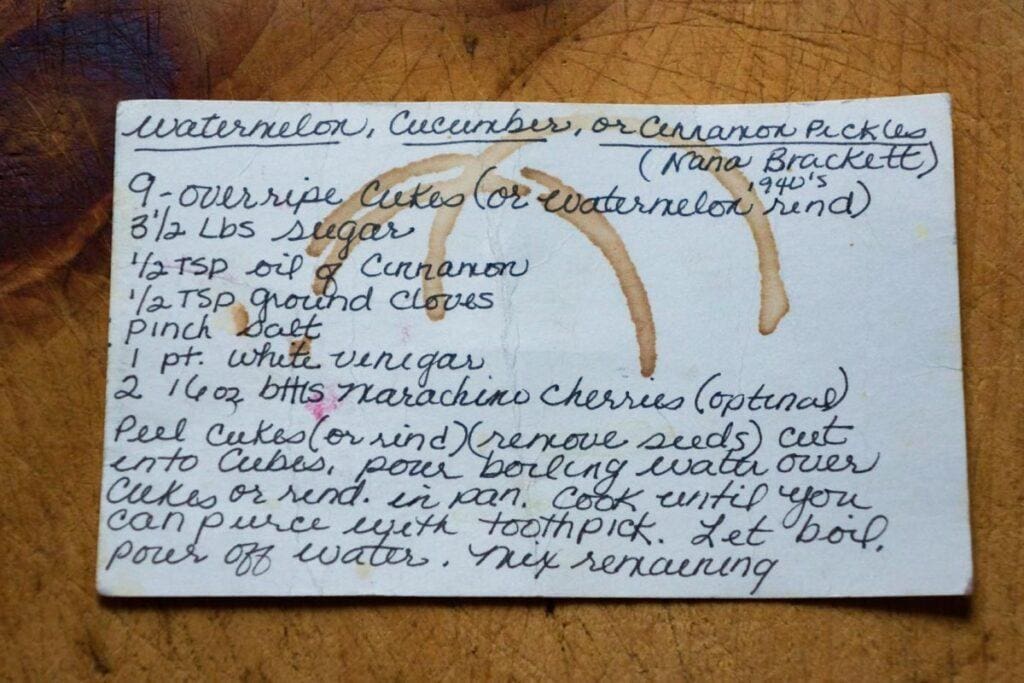 Watermelon, Cucumber, or Cinnamon Pickles
(Nana Brackett)
1940's
9-overripe Cukes (or watermelon rind)
3 1/2 Lbs sugar
1/2 TSP oil of Cinnamon
1/2 TSP ground Cloves
Pinch Salt
1 pt. white venegar
2 16oz bttls Marachino Cherries (optinal)
Peel Cukes (or rind) (remove seeds) cut
into Cubes, pour boiling water over
Cukes or rind. in pan. Cook until you
can pierce with toothpick. Let boil.
pour off water. Mix remaining